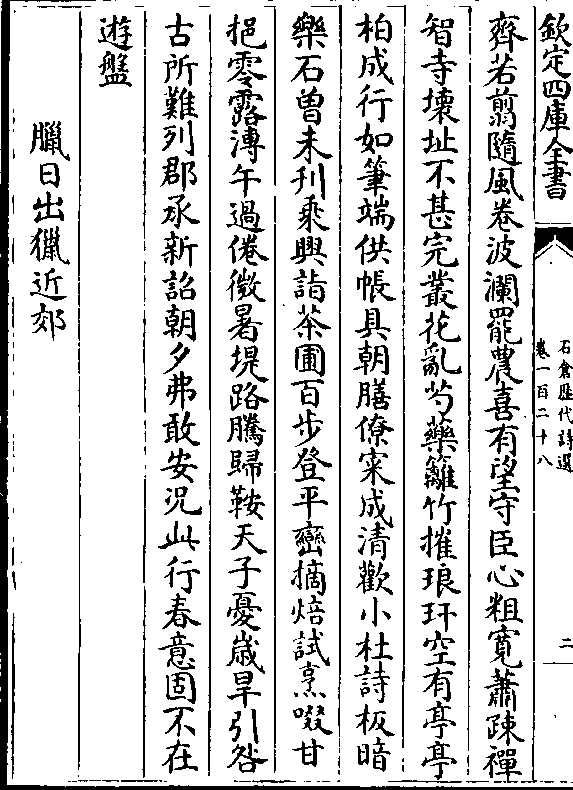 欽定四庫全書
石倉歴代詩選
卷一百二十八
二
齊若翦隨風卷波瀾罷農喜有望守臣心粗寛蕭疎禪
智寺壊址不甚完叢花亂芍藥籬竹摧琅玕空有亭亭
柏成行如筆端供帳具朝膳僚寀成清歡小杜詩板暗
樂石曽未刋乘興詣茶圃百歩登平巒摘焙試烹啜甘
挹零露漙午過倦微暑堤路騰歸鞍天子憂歳旱引咎
古所難列郡承新詔朝夕弗敢安况此行春意固不在
遊盤
臘日出獵近郊